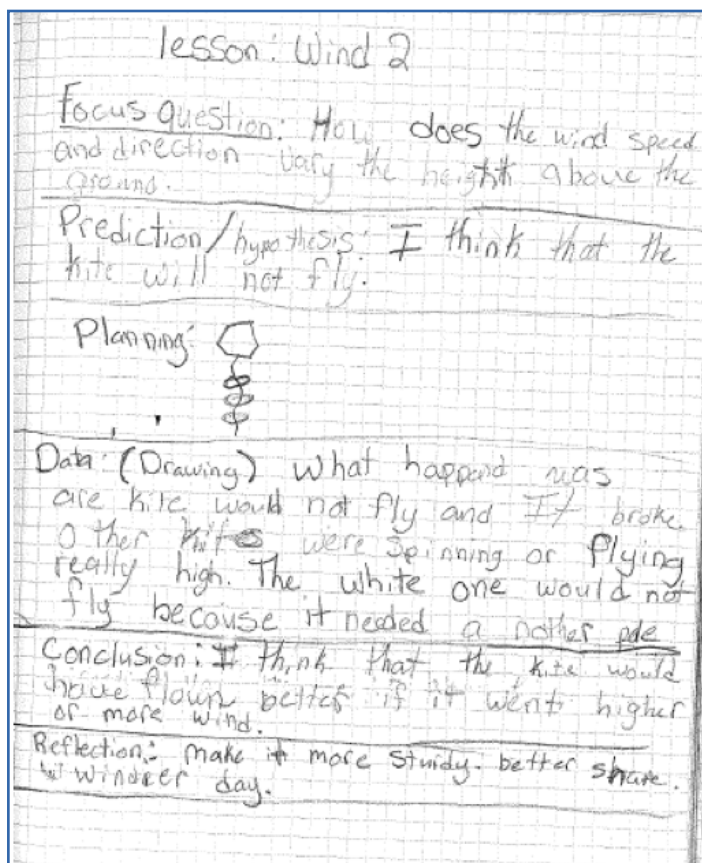 lesson: Wind 2
Focus question: How does the wind speed
and direction vary the height above the
ground.
Prediction/hypothesis: I think that the
kite will not fly.
Planning:
Data: (Drawing) What happend was
are kite would not fly and It broke.
Other kites were spinning or flying
really high. The white one would not
fly because it needed a nother pole
Conclusion: I think that the kite would
have flown better if it went higher
or more wind.
Reflection: make it more sturdy. better
day.